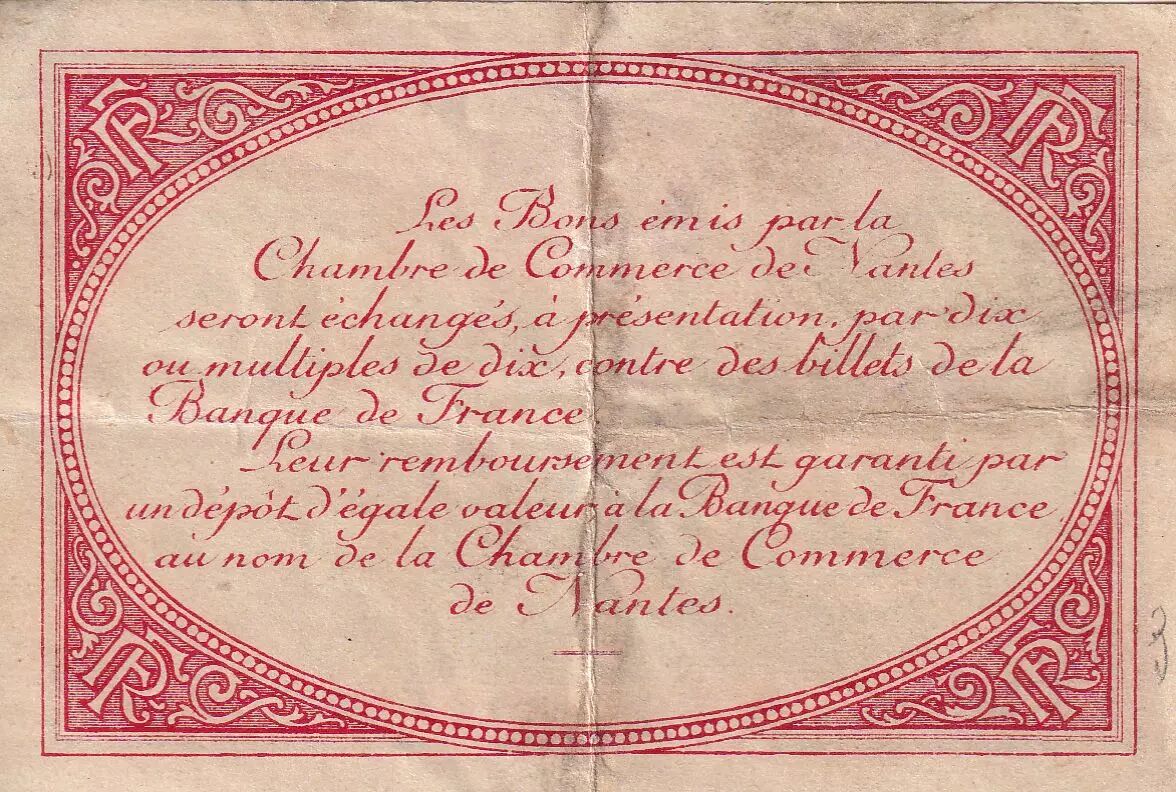 Les Bons émis par la
Chambre de Commerce de Nantes
seront échangés, à présentation, par dix
ou multiples de dix, contre des billets de la
Banque de France.
Leur remboursement est garanti par
un dépôt d'égale valeur à la Banque de France
au nom de la Chambre de Commerce
de Nantes.
RF
RF
RF
RF
3